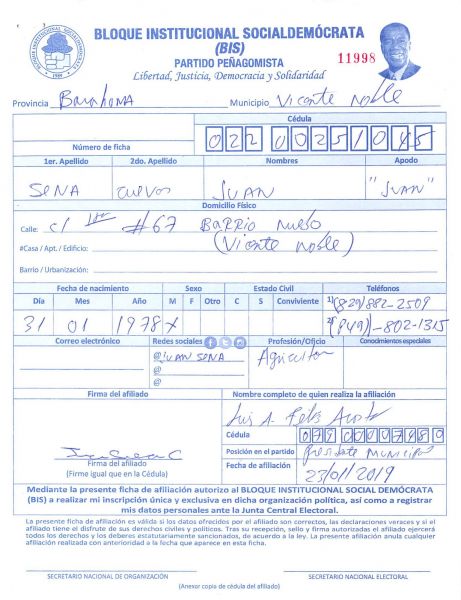 BLOQUE INSTITUCIONAL SOCIALDEMÓCRATA
(BIS)
PARTIDO PEÑAGOMISTA
Libertad, Justicia, Democracia y Solidaridad
11998
Provincia Barahona Municipio Vicente Noble
Cédula
Número de ficha
1er. Apellido 2do. Apellido Nombres Apodo
SENA Cuevas JUAN "JUAN"
Domicilio Físico
Calle: C/ #67 BARRIO NUEVO
#Casa / Apt. / Edificio: (Vicente Noble)
Barrio / Urbanización:
Fecha de nacimiento Sexo Estado Civil Teléfonos
Día Mes Año M F Otro C S Conviviente 1) (829) 882-2509
31 01 1978 x 2) (849) - 802-1315
Correo electrónico Redes sociales Profesión/Oficio Conocimientos especiales
@JUAN SENA Agricultor
@
@
Firma del afiliado Nombre completo de quien realiza la afiliación
Luis A. Feliz Acosta
Cédula
Posición en el partido Presidente Municipal
Firma del afiliado
(Firma igual que en la Cédula)
Fecha de afiliación 23/01/2019
Mediante la presente ficha de afiliación autorizo al BLOQUE INSTITUCIONAL SOCIAL DEMÓCRATA
(BIS) a realizar mi inscripción única y exclusiva en dicha organización política, así como a registrar
mis datos personales ante la Junta Central Electoral.
La presente ficha de afiliación es válida si los datos ofrecidos por el afiliado son correctos, las declaraciones veraces y si el
afiliado tiene el disfrute de sus derechos civiles y políticos. Tras su recepción, sello y firma autorizadas el afiliado ejercerá
todos los derechos y los deberes estatutariamente sancionados, de acuerdo a la ley. La presente afiliación anula cualquier
afiliación realizada con anterioridad a la fecha que aparece en esta ficha.
SECRETARIO NACIONAL DE ORGANIZACIÓN SECRETARIO NACIONAL ELECTORAL
(Anexar copia de cédula del afiliado)